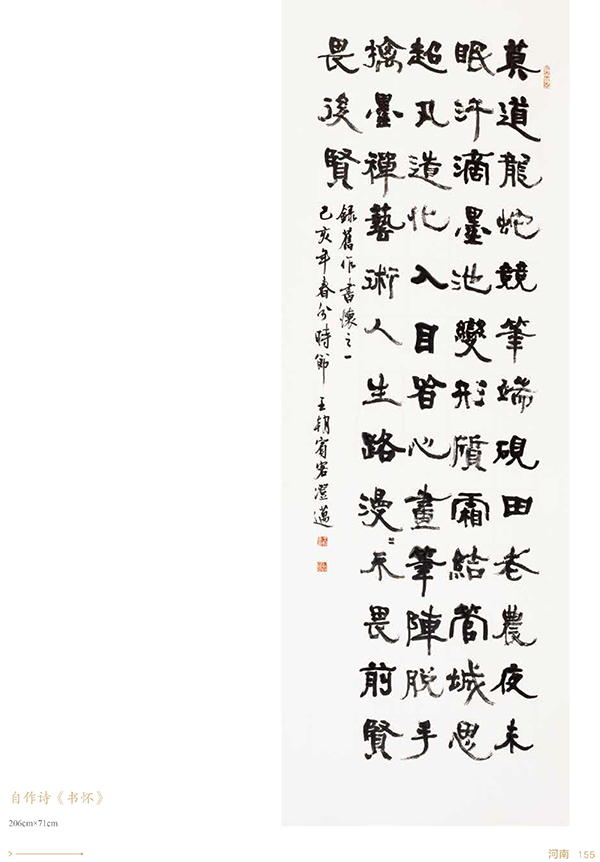 莫道龍蛇競筆端硯田老農夜未
眠汗滴墨池變形質霜結管城思
超凡造化入目皆心畫筆陣脫手
擒墨禪藝術人生路漫〻不畏前賢
畏後賢
錄舊作書懷之一
己亥年春分時節 王朝賓客澄邁
自作诗《书怀》
206cm×71cm
河南 155